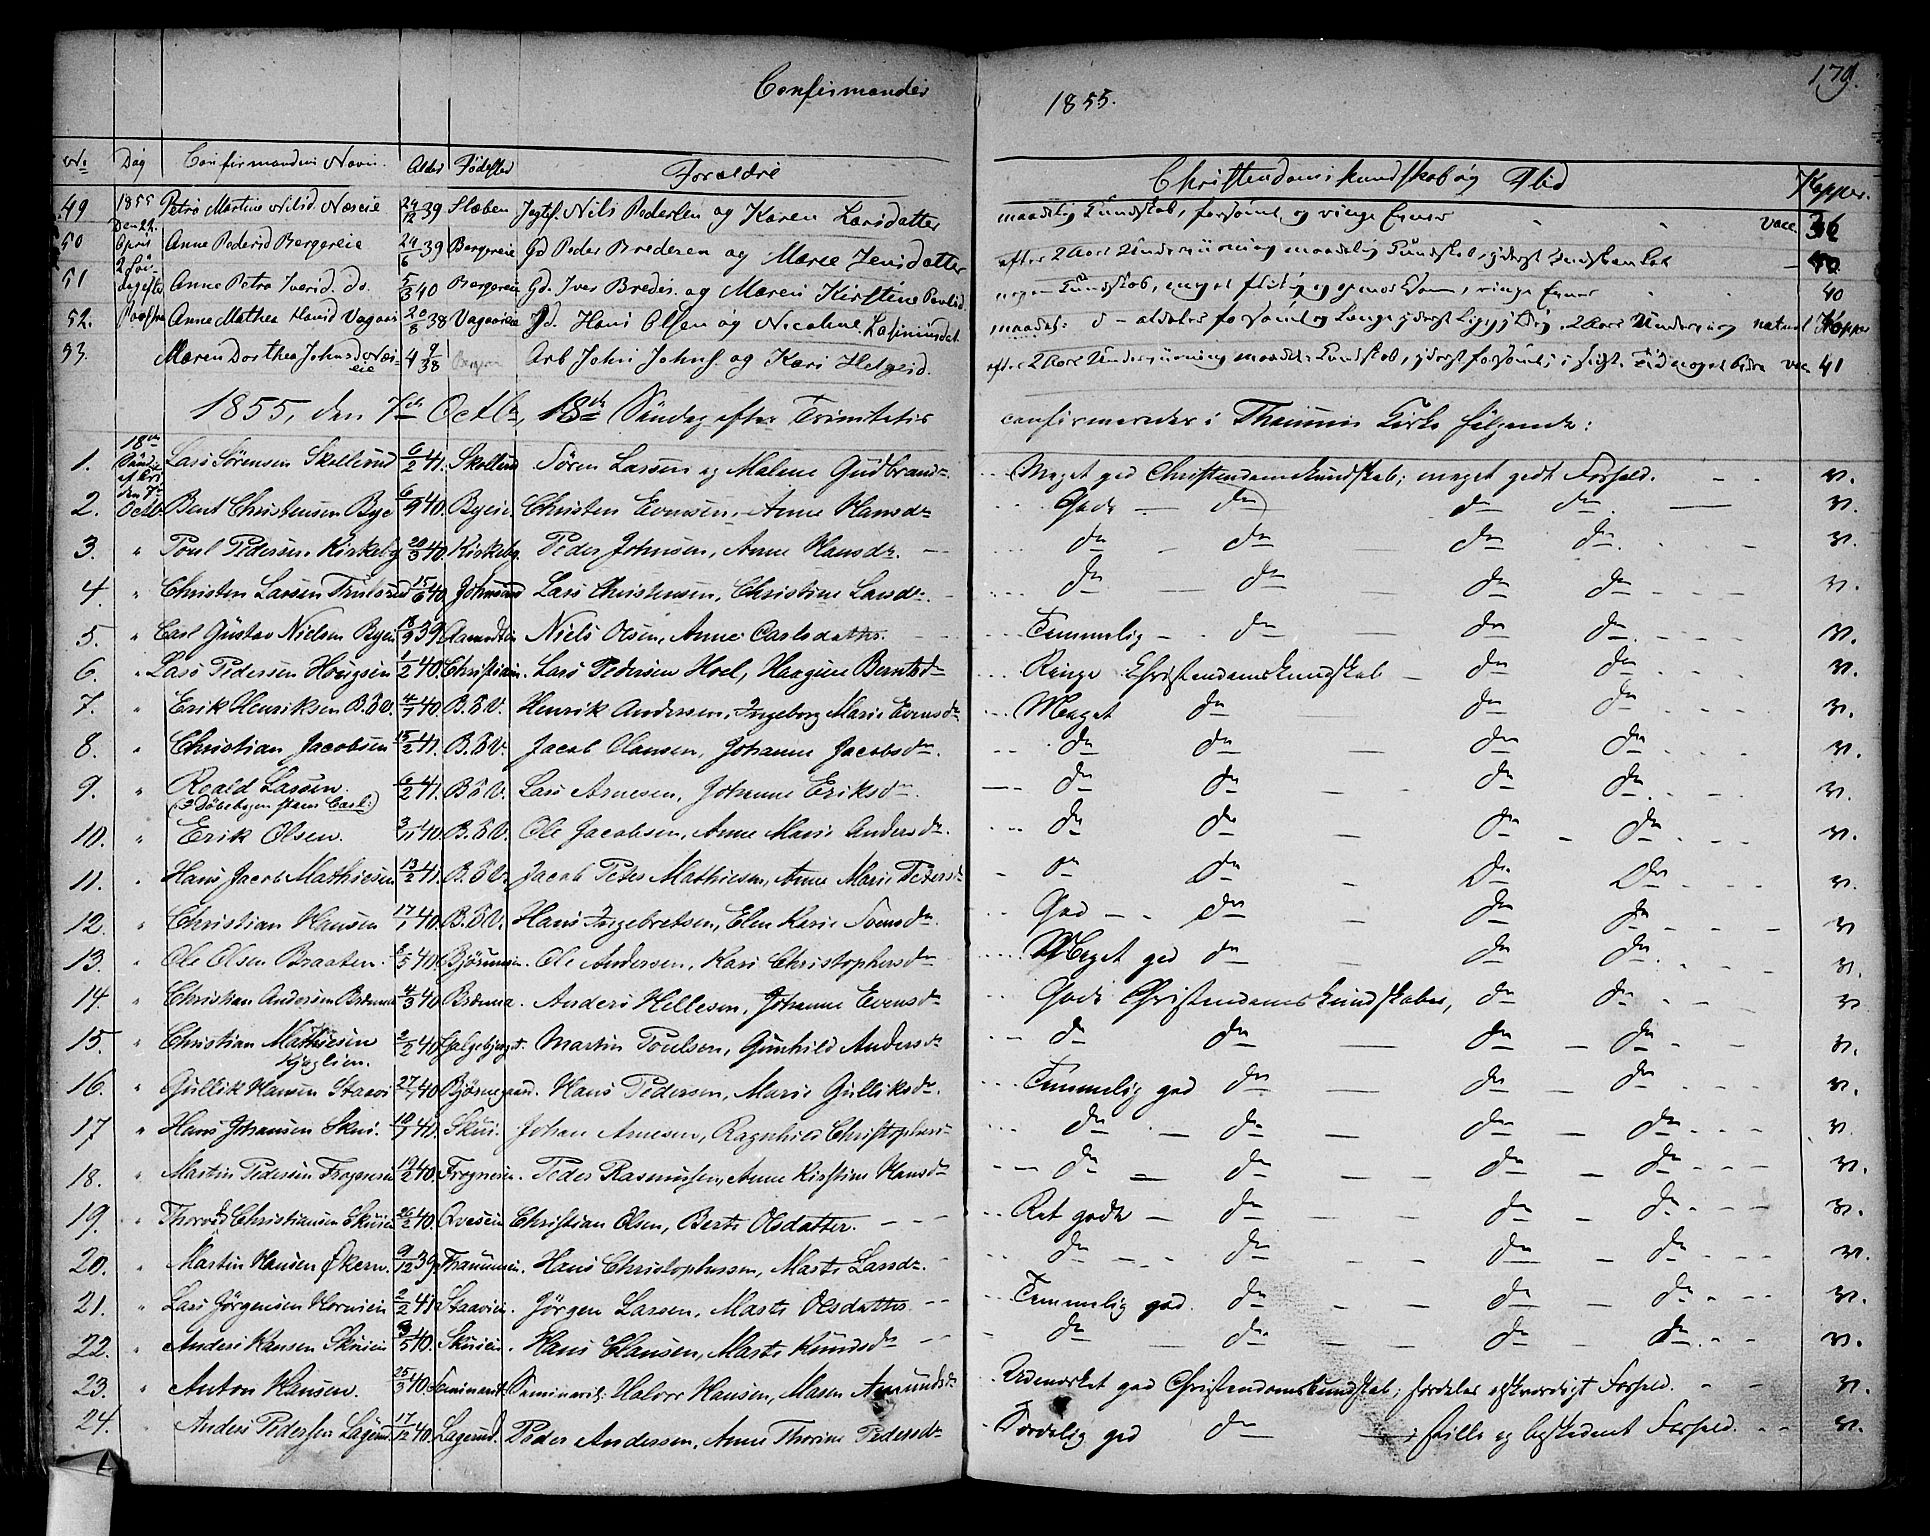 Confirmander 1855. 179.
No Dag Confirmandens Navn. Alder Fødested Forældre Christendomskundskab og Flid Kopper.
49 1855 Petra Martine Nilsd. Næseie 24/12 39 Slæben Nils Pedersen og Karen Larsdatter maadelig Kundskab, forsømt og ringe Evner vacc. 36
50 Den 22 April Anne Pedersd Bergereie 24/6 39 Bergereie Gd Peder Bredesen og Maren Jensdatter efter 2 Aars Underviisning maadelig Kundskab, yderst 40
51 2 Søndag efter Anne Petra Iversd. do. 5/3 40 Bergereie Gd. Iver Bredes. og Maren Kirstine Paulsd. nogen Kundskab, meget flittig og ringe Evner 40
52. Paaske Anne Mathea Hansd Vagaas 20/8 38 Vagaaseie Gd. Hans Olsen og Nicoline maadel: d - forsømt og 2 Aars naturl Kopper
53. Maren Dorthea Johnsd Næseie 4 9/38 Arb John Johns. og Kari Helgesd. efter 2 Aars Underviisning maadel: Kundskab, yderst forsømt vac 41
1855, den 7de Octbr, 18de Søndag efter Trinitatis confirmerede i Thanums Kirke følgende:
1. 18de Sønd. ef Tri den 7de Octb. Lars Sörensen Skollerud 6/2 41. Skollerud Sören Larsen og Malene Gudbrands- Meget god Christendomskundskab; meget godt Forhold. v.
2. Bent Christensen Bye 6/9 40. Byeie. Christen Evensen, Anne Hansdr God do do do v.
3. " Poul Pedersen Kirkeby 20/3 40. Kirkeby. Peder Johnsen, Anne Hansdr. do do do do v.
4. " Christen Larsen Trulsrud 15/6 40. Johnsrud Lars Christensen, Christine Larsdr. do do do do v.
5. " Carl Gustav Nielsen Byeie 18/9 39 Niels Olsen, Anne Carlsdatter. Temmelig do do do v.
6. " Lars Pedersen Hougsen 1/2 40. Christiania. Lars Pedersen Hoel, Haagine Berntsdr Ringe Christendomskundskab do do v.
7. " Erik Henriksen B.B.V. 4/7 40. B.B.V. Henrik Andersen, Ingeborg Marie Evensdr Meget do do do v.
8. " Christian Jacobsen 15/2 41. B.B.V. Jacob Hansen, Johanne Jacobsdr. do do do do v.
9. " Roald Larsen. (: I Döbebogen staaer Carl:) 6/2 41. B.B.V. Lars Arnesen, Johanne Eriksdr do do do do v.
10. " Erik Olsen. 3/11 40. B.B.V. Ole Jacobsen, Anne Marie Andersdr. do do do do v.
11. " Hans Jacob Mathiesen 13/2 41. B.B.V. Jacob Peter Mathiesen, Anne Marie Petersdr do do do do v.
12. " Christian Hansen 17/1 40. B.B.V. Hans Ingebretsen, Elen Karie Tomsdr. God do do do v
13. " Ole Olsen Braaten. 8/5 40 Ole Andersen, Kari Christophersdr Meget god do do do v.
14. " Christian Andersen Brenna 4/3 40 Brenna. Anders Hellesen, Johanne Evensdr Gode Christendomskundskaber, do do v
15. " Christian Mathiesen Kjaglien. 2/2 40 Martin Poulsen, Gunhild Andersdr do do do do v.
16. " Gullik Hansen Staavi 27/1 40 Bjørnegaard. Hans Pedersen, Marie Gulliksdr. Temmelig god do do do v.
17 " Hans Johansen Skui. 10/7 40. Skui. Johan Arnesen, Ragnhild Christophers- do do do do v.
18. " Martin Pedersen Frogneseie 19/2 40. Frogneseie. Peder Rasmussen, Anne Kirstine Hansdr do do do do v.
19. " Thorvald Christiansen Skuieie 26/2 40. Christian Olsen, Berte Olsdatter. Ret godt do do do v.
20. " Martin Hansen Økern. 9/12 39 Hans Christophersen, Marte Larsdr. do do do do v.
21. " Lars Jörgensen Horneie 2/2 41 Staavie. Jörgen Larsen, Marte Olsdatter Temmelig god. do do do v.
22. " Anders Hansen Skuieie 9/5 40. Skuieie. Hans Hansen, Marte Knudsdr do do do do v.
23. " Anton Hansen. 25/3 40. Seminariet. Halvor Hansen, Maren Amundsdr Udmærket god Christendomskundskab; særdeles elskværdigt Forhold. v.
24. " Anders Pedersen Lagerud. 17/12 40. Lagerud. Peder Andersen, Anne Thorine Pedersdr Særdelig god do stille og beskedent Forhold. v.